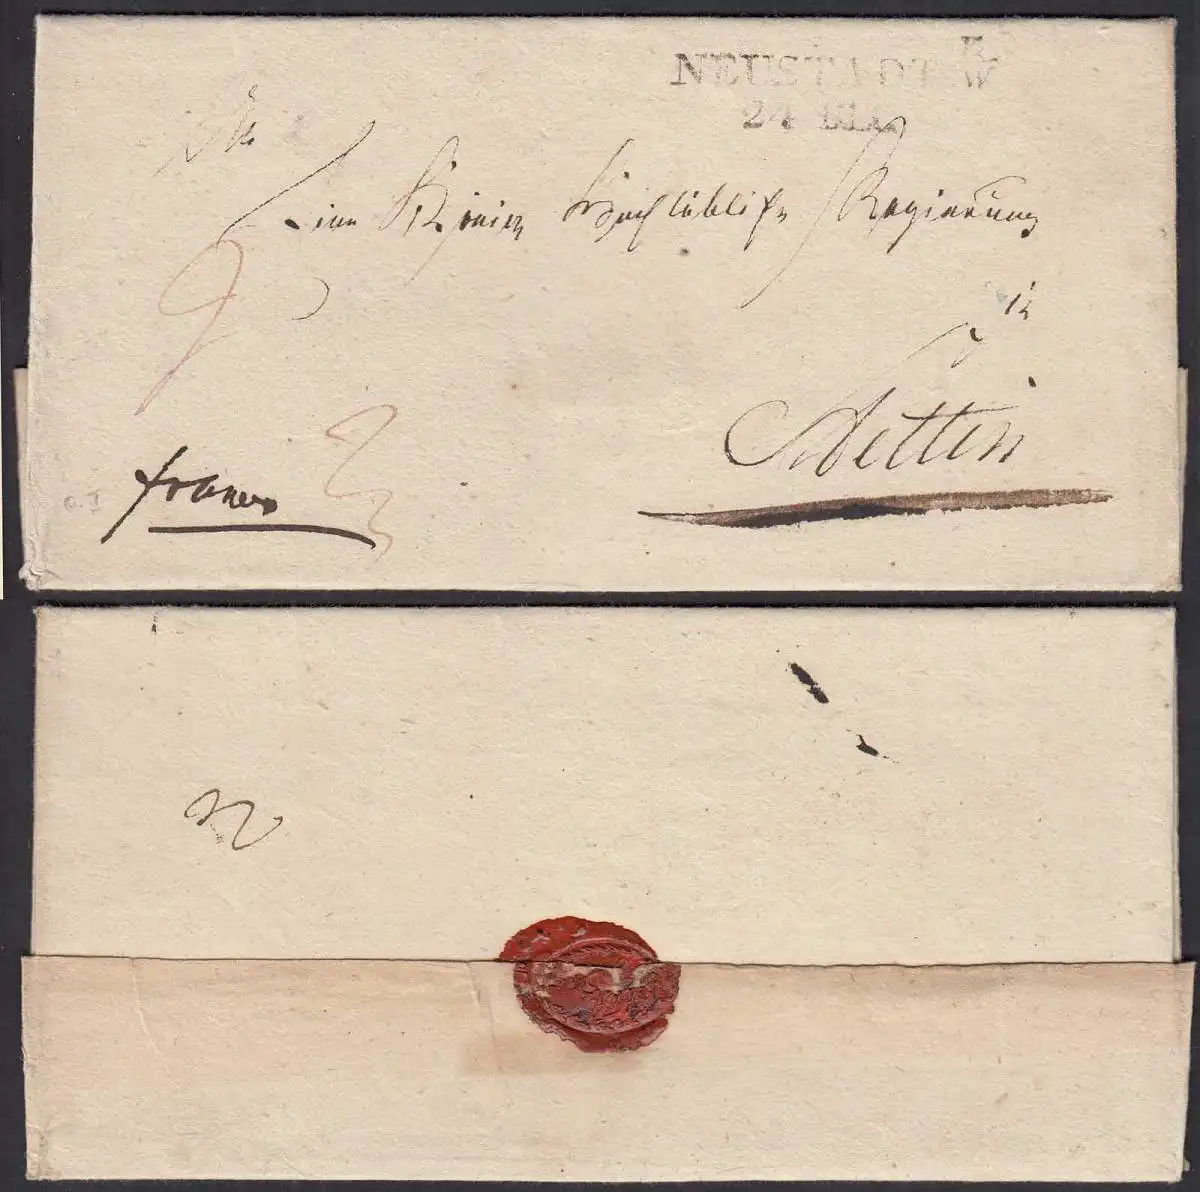 NEUSTADT E/W
24
An
Eine Königl Hochlöbliche Regierung
in
Stettin
franco